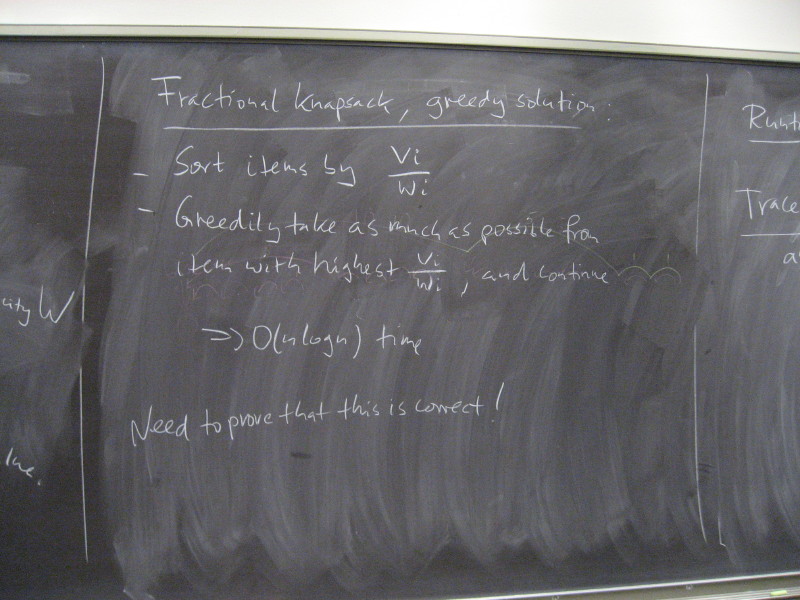 Fractional Knapsack, greedy solution:
- Sort items by Vi/Wi
- Greedily take as much as possible from
item with highest Vi/Wi, and continue
=> O(n log n) time
Need to prove that this is correct!
W
Trace